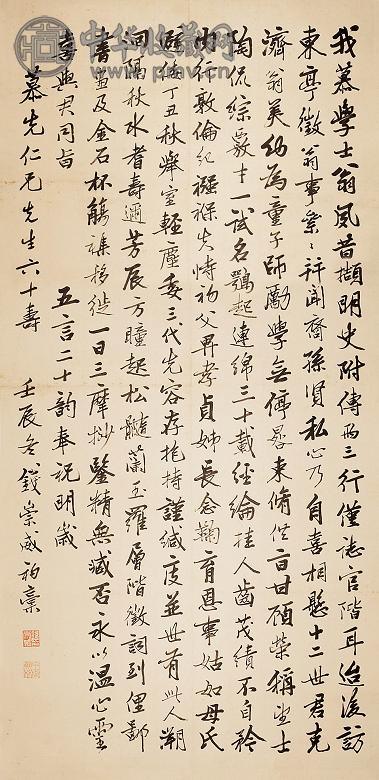 我慕學士翁風昔擷明史附傳兩三行僅誌官階耳迨後訪
東亭徵翁事業業并聞裔孫賢私心乃自喜相懸十二世君克
濟翁美幼為童子師勵學無停晷束脩供旨甘顧榮稱望士
陶侃綜敷士一試名鵲起連綿三十載經綸挂人齒茂績不自矜
內行敦倫紀襁褓失恃初父畀孝貞姊長念鞠育恩事姑如母氏
避倭丁丑秋舉室輕塵委三代先容存抱持謹緘度並世有此人溯
洄隔秋水耆壽邇芳辰方瞳起松髓蘭玉羅層階徵詞到俚鄙
書畫及金石杯觴譟移徙一日三摩抄鑒精無臧否永以溫心靈
喜與君同旨
五言二十韵奉祝明歲
慕先仁兄先生六十壽
壬辰冬錢崇威初稾